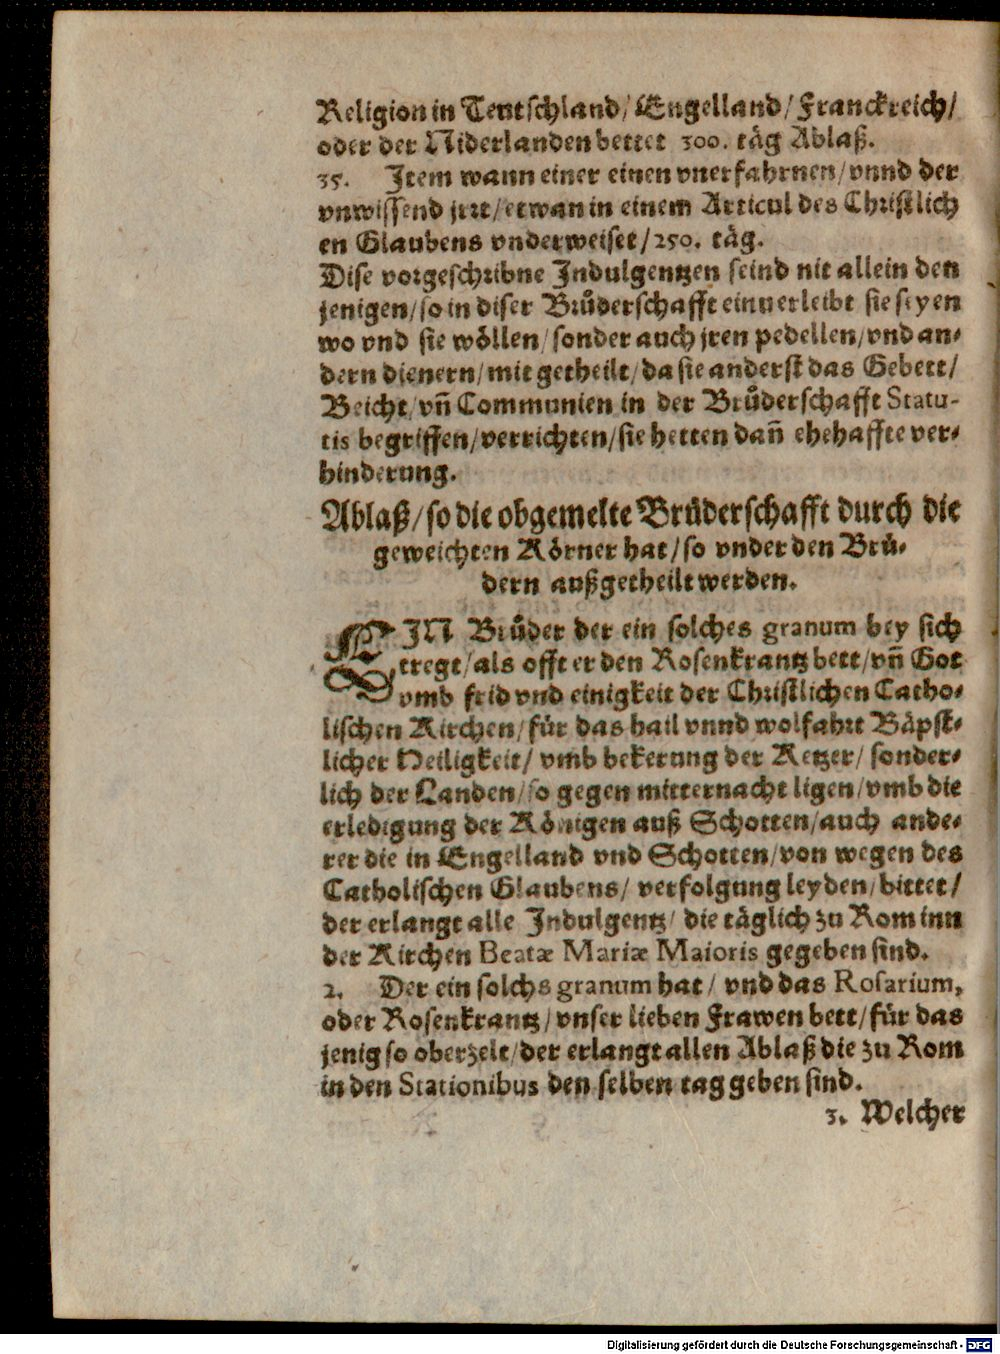 Religion in Teutschland/Engelland/Franckreich/
oder der Niderlanden bettet 300. täg Ablaß.
35. Item wann einer einen vnerfahrnen/vnnd der
vnwissend jrrt/etwan in einem Articul des Christlich
en Glaubens vnderweiset/250. täg.
Dise vorgeschribne Indulgentzen seind nit allein den
jenigen/so in diser Brůderschafft einuerleibt sie seyen
wo vnd sie wöllen/sonder auch jren pedellen/vnd an-
dern dienern/mit getheilt/da sie anderst das Gebett/
Beicht/vñ Communien in der Brůderschafft Statu-
tis begriffen/verrichten/sie hetten dañ ehehaffte ver-
hinderung.
Ablaß/so die obgemelte Brůderschafft durch die
geweichten Körner hat/so vnder den Brů-
dern außgetheilt werden.
EIN Brůder der ein solches granum bey sich
tregt/als offt er den Rosenkrantz bett/vñ Got
vmb frid vnd einigkeit der Christlichen Catho-
lischen Kirchen/für das hail vnnd wolfahrt Bäpst-
licher Heiligkeit/vmb bekerung der Ketzer/sonder-
lich der Landen/so gegen mitternacht ligen/vmb die
erledigung der Königen auß Schotten/auch ande-
rer die in Engelland vnd Schotten/von wegen des
Catholischen Glaubens/verfolgung leyden/bittet/
der erlangt alle Indulgentz/die täglich zu Rom inn
der Kirchen Beatæ Mariæ Maioris gegeben sind.
2. Der ein solchs granum hat/vnd das Rosarium,
oder Rosenkrantz/vnser lieben Frawen bett/für das
jenig so oberzelt/der erlangt allen Ablaß die zu Rom
in den Stationibus den selben tag geben sind.
3. Welcher
Digitalisierung gefördert durch die Deutsche Forschungsgemeinschaft - DFG